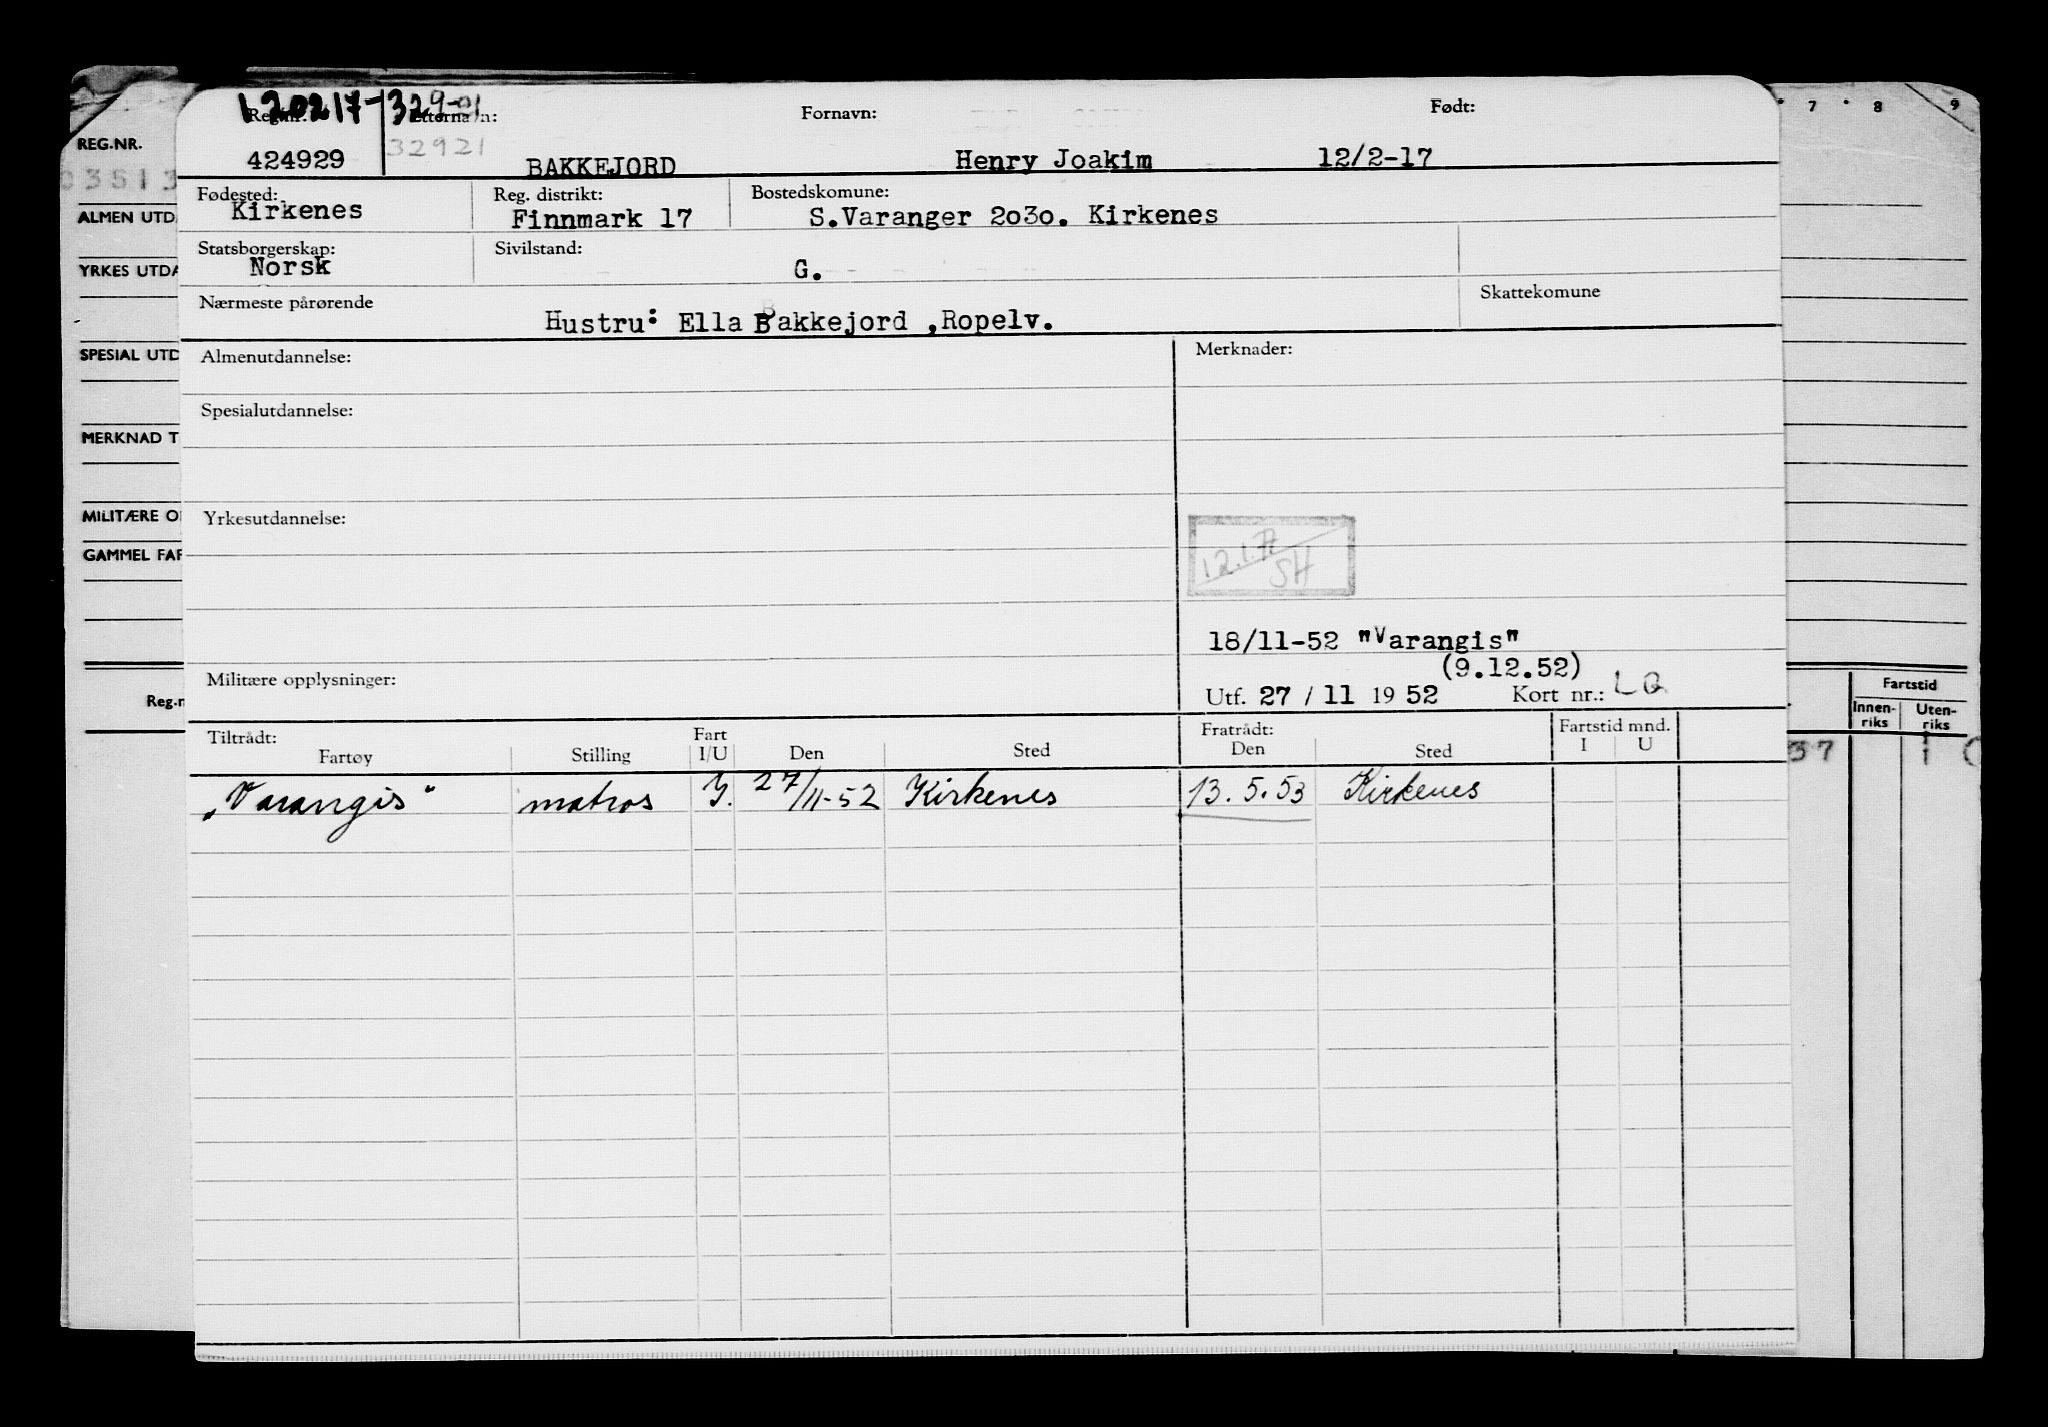 120217-329-01
Reg.nr. Etternavn: Fornavn: Født:
32921
424929 BAKKEJORD Henry Joakim 12/2-17
Fødested: Reg. distrikt: Bostedskomune:
Kirkenes Finnmark 17 S.Varanger 2o3o. Kirkenes
Statsborgerskap: Sivilstand:
Norsk G.
Nærmeste pårørende Skattekomune
Hustru: Ella Bakkejord ,Ropelv.
Almenutdannelse: Merknader:
Spesialutdannelse:
Yrkesutdannelse:
12.1.77
SH
18/11-52 "Varangis"
(9.12.52)
Militære opplysninger: Utf. 27 / 11 19 52 Kort nr.:
Tiltrådt: Fart Fratrådt: Fartstid mnd.
Fartøy Stilling I/U Den Sted Den Sted I U
„Varangis" matros I. 27/11-52 Kirkenes 13.5.53 Kirkenes
REG.NR.
03513
ALMEN UTD
YRKES UTDA
SPESIAL UTD
MERKNAD T
MILITÆRE O
GAMMEL FAR
Reg.n
7 8 9
Fartstid
Innen-riks Uten-riks
37 1